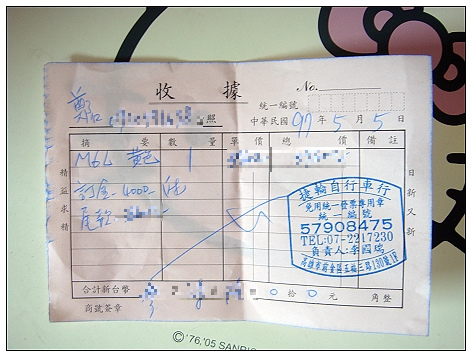 收據
No.
統一編號
鄭
照
中華民國 97 年 5 月 5 日
摘要 數量 單價 總價 備註
M6L 黃色 1
訂金 4000
尾款
精益求精
日新又新
捷輪自行車行
免用統一發票專用章
統一編號
57908475
TEL:07-2217230
負責人:李
合計新台幣 0 拾 0 元 角整
商號簽章
©'76,'05 SANRIO